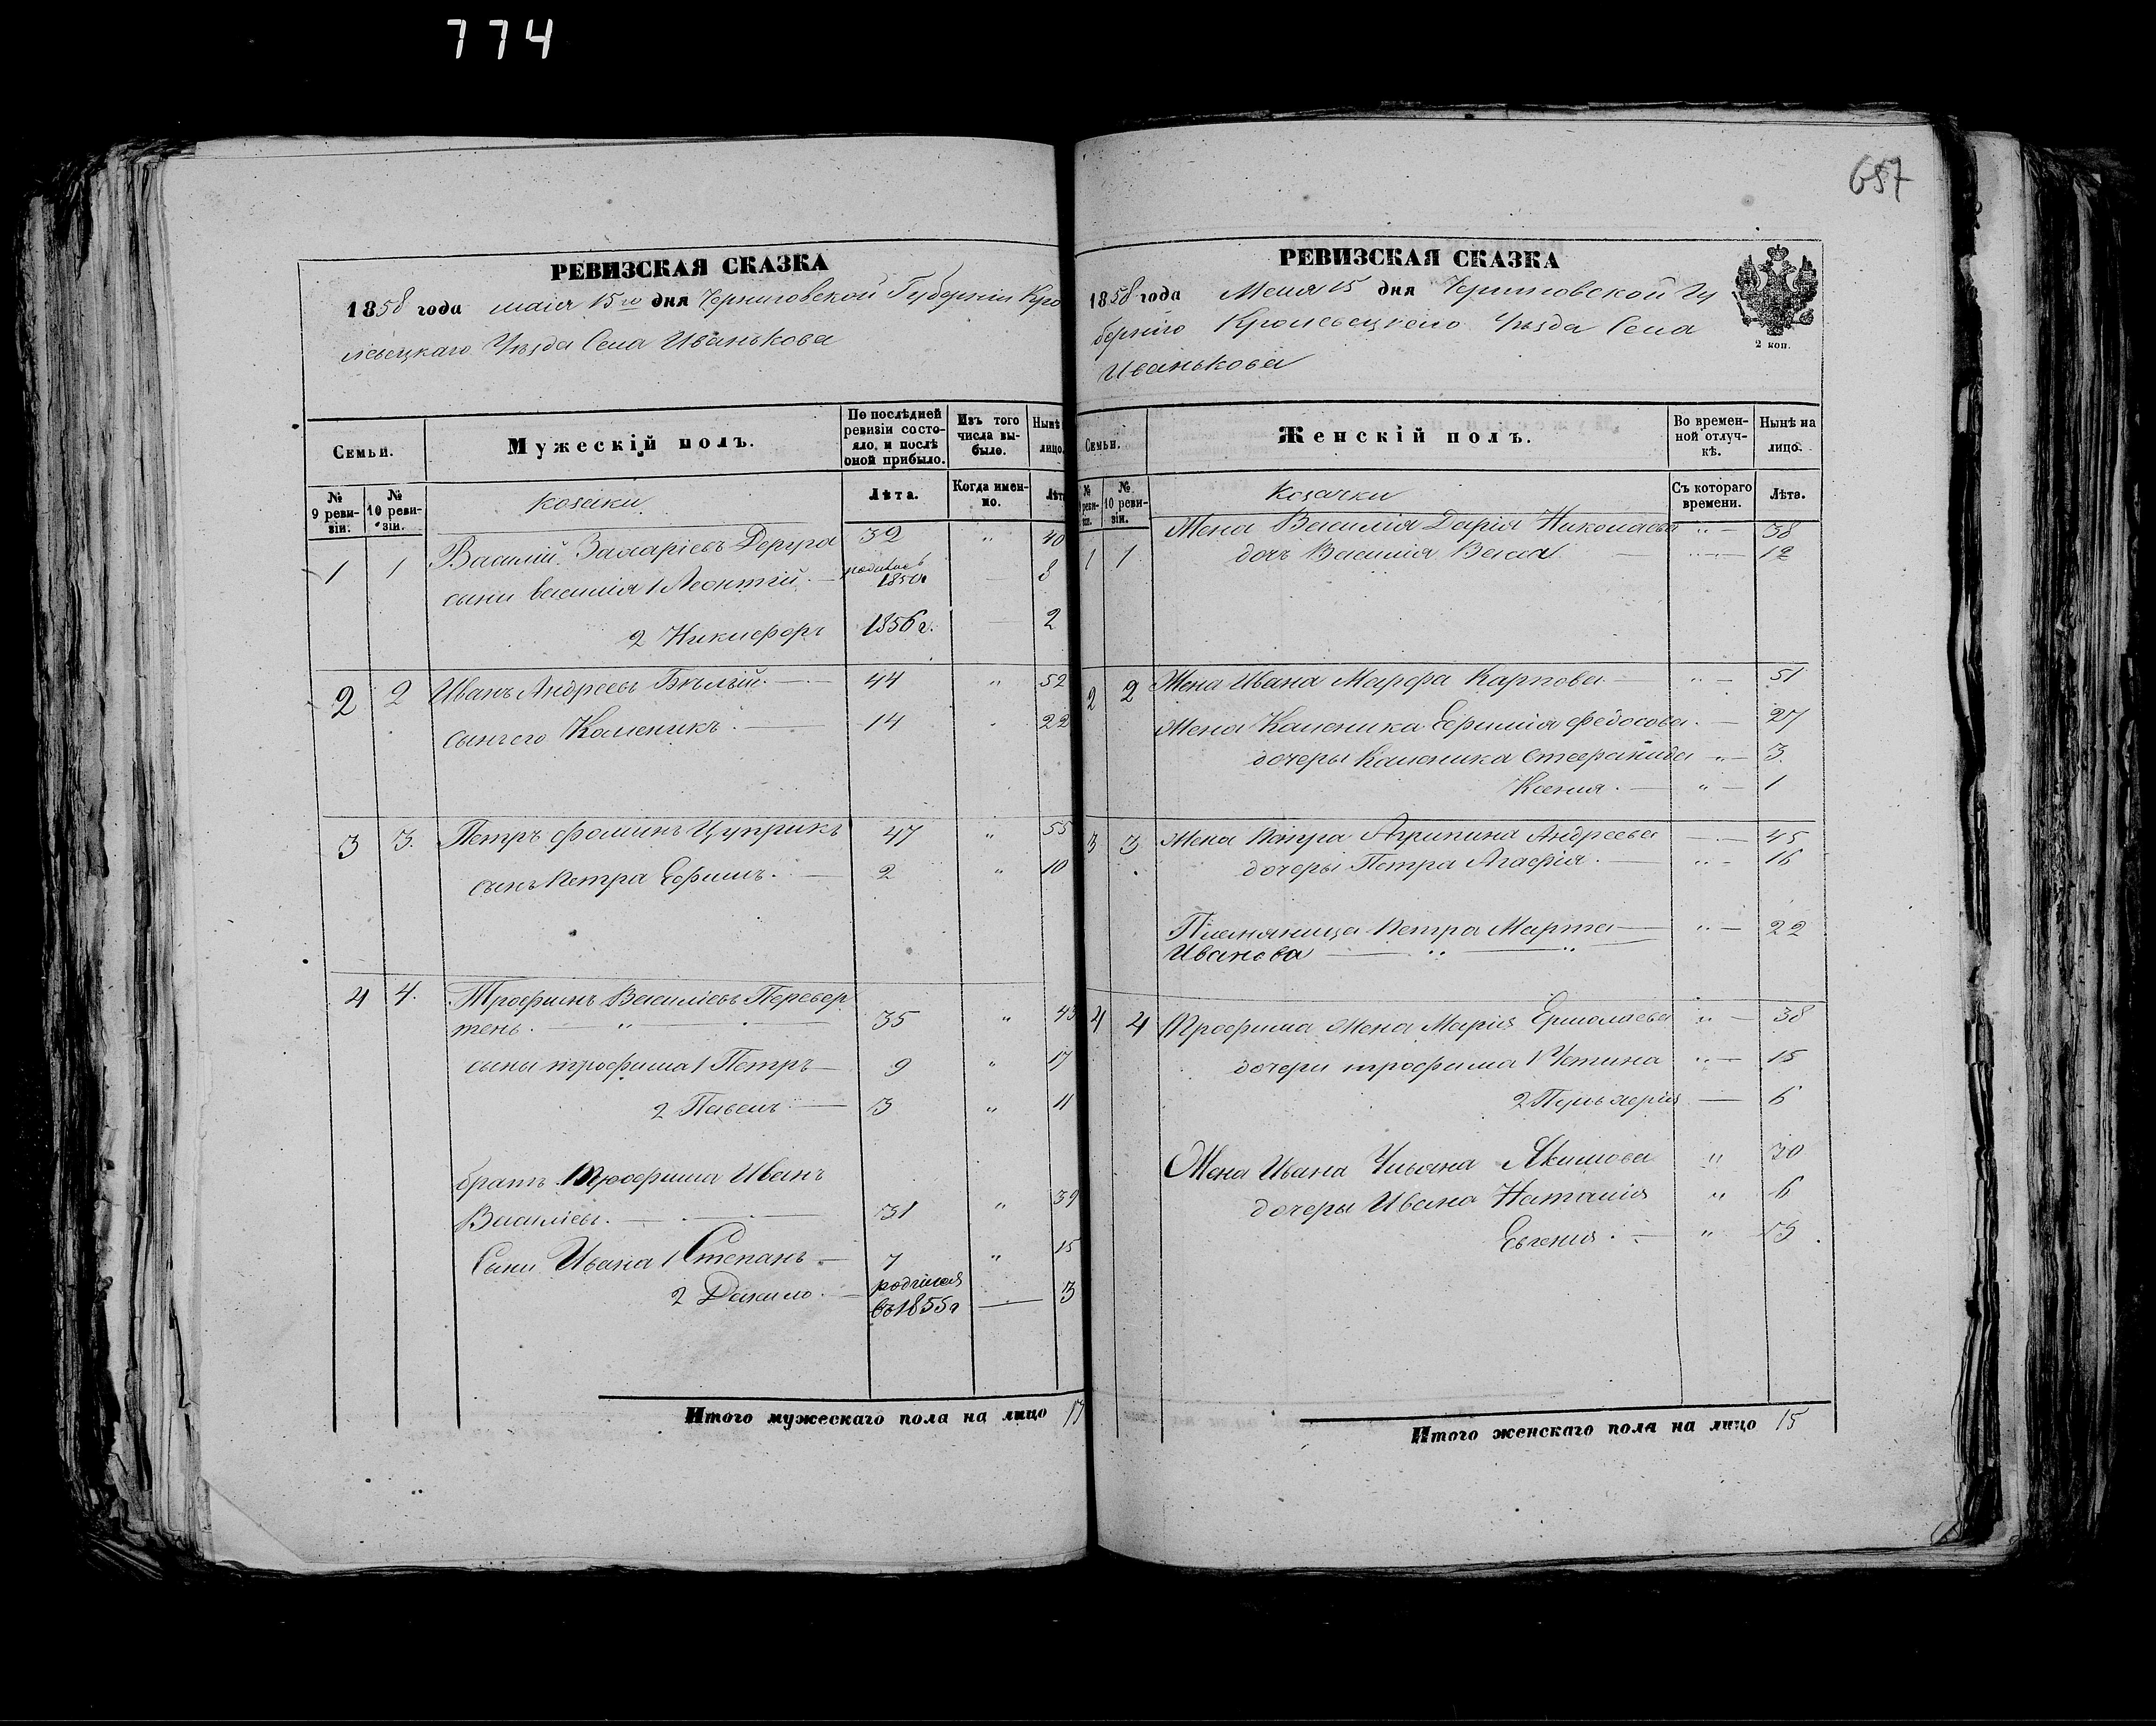 774
657
РЕВИЗСКАЯ СКАЗКА
1858 года маія 15го дня Черниговской Губерніи Кро
левецкаго Уѣзда Села Иванькова
Семьи.
Мужескій полъ.
По послѣдней ревизіи состояло, и послѣ оной прибыло.
Изъ того числа выбыло.
Нынѣ лицо.
№ 9 ревизіи.
№ 10 ревизіи.
козаки
Лѣта.
Когда именно.
Лѣт
1 1 Василий Захаріевъ Дергра 32 " 40
сыни василія 1 Леонтій родился 1850г 8
2 Никифоръ 1856 г. 2
2 2 Иванъ Андреевъ Бѣлый 44 " 52
сынъ его Каленикъ 14 " 22
3 3. Петръ Фоминъ Цуприкъ 47 " 55
сынъ Петра Ефимъ 2 " 10
4 4. Трофимъ ВасиліевъПеревер
тень " 35 " 43
сыны трофима 1 Петръ 9 " 17
2 Павелъ 3 " 11
братъ Трофима Иванъ
Василіевъ 31 " 39
Сыни Ивана 1 Степанъ 7 " 15
2 Данило родился въ 1855г 3
Итого мужескаго пола на лицо 13
РЕВИЗСКАЯ СКАЗКА
1858 года Маия 15 дня Черниговской Гу
берніго Кролевецкого Уѣзда Села
Иванькова
2 коп.
Семьи.
Женскій полъ.
Во временной отлучкѣ.
Нынѣ на лицо.
№ реви- зіи.
№ 10 ревизіи.
Козачки
Съ котораго времени.
Лѣта.
1 1 Жена Василія Дарія Николаева " 38
дочъ Василія Васса " 12
2 2 Жена Ивана Марфа Карпова " 51
Жена Каленика Ефимія Федосова 27
дочеры Каленика Стефанида " 3
Ксения " 1
3 3 Жена Петра Агрипина Андреева 45
дочеры Петра Агафія " 16
Племяница Петра Марта " 22
Иванова " "
4 4 Трофима Жена Марія Ермолаева " 38
дочери трофима 1 Устина " 15
2 Пульхерія 6
Жена Ивана Ульяна Якимова " 30
дочеры Ивана Наталія " 6
Евгения "
Итого женскаго пола на лицо 15